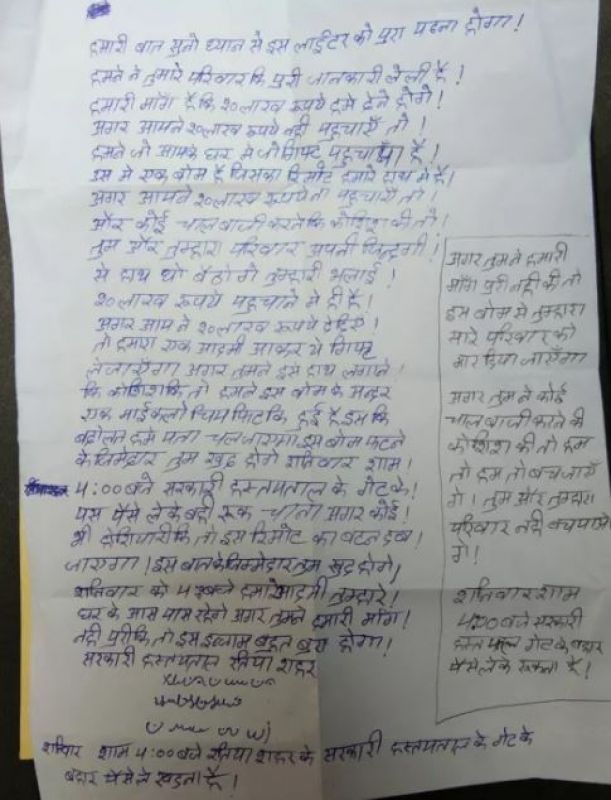 हमारी बात सुनो ध्यान से इस लाईटर को पुरा पढना होगा!
हमने ने तुमारे परिवार कि पुरी जानकारी लेली है!
हमारी माँग है कि २० लाख रूपये हमे देने होगे!
अगर आपने २० लाख रूपये नही पहुचाएँ तो!
हमने जो आपके घर मे जो गिफ्ट पहुचाँया है!
इस मे एक बोम है जिसका रिमोट हमारे हाथ मे है!
अगर आपने २० लाख रूपये ना पहुचाएँ तो!
और कोई चाल बाजी करने कि कोशिश की तो!
तुम और तुम्हारा परिवार अपनी जिन्दगी!
से हाथ धो बैठोगे तुम्हारी भलाई!
२० लाख रूपये पहुचाने मे ही है!
अगर आप ने २० लाख रूपये दे दिए!
तो हमारा एक आदमी आकर ये गिफ्ट
ले जाएँगा अगर तुमने इसे हाथ लगाने!
कि कोशिश कि तो हमने इस बोम के अन्दर
एक माईकलो चिप फिट कि हुई है इस कि
बदोलत हमे पता चल जाएगा इस बोम फटने
के जिमेदार तुम खुद होगे शनिवार शाम!
4:00 बजे सरकारी हस्तपताल के गेट के!
पास पैसे लेके वही रूक जाना अगर कोई!
भी होशियारी कि तो इस रिमोट का बटन दब!
जाएगा! इस बात के जिम्मेदार तुम खुद होगे,
शनिवार को 4 बजे हमारे आदमी तुम्हारे!
घर के आस पास रहेगे अगर तुमने हमारी माँग!
नही पुरी कि तो इस इन्जाम बहुत बुरा होगा!
सरकारी हस्तपताल रतिया शहर
शनिवार शाम 4:00 बजे रतिया शहर के सरकारी हस्तपताल के गेट के
बहार पैसे ले खडना है!
अगर तुमने हमारी
माँग पुरी नही की तो
इस बोम से तुम्हारा
सारे परिवार को
मार दिया जाएँगा
अगर तुम ने कोई
चाल बाजी करने की
कोशिश की तो हम
तो हम तो बच जाएँ
गे! तुम और तुम्हारा
परिवार नही बच पाओ
गे!
शनिवार शाम
4:00 बजे सरकारी
हस्तपताल गेट के बहार
पैसे लेके रूकना है!